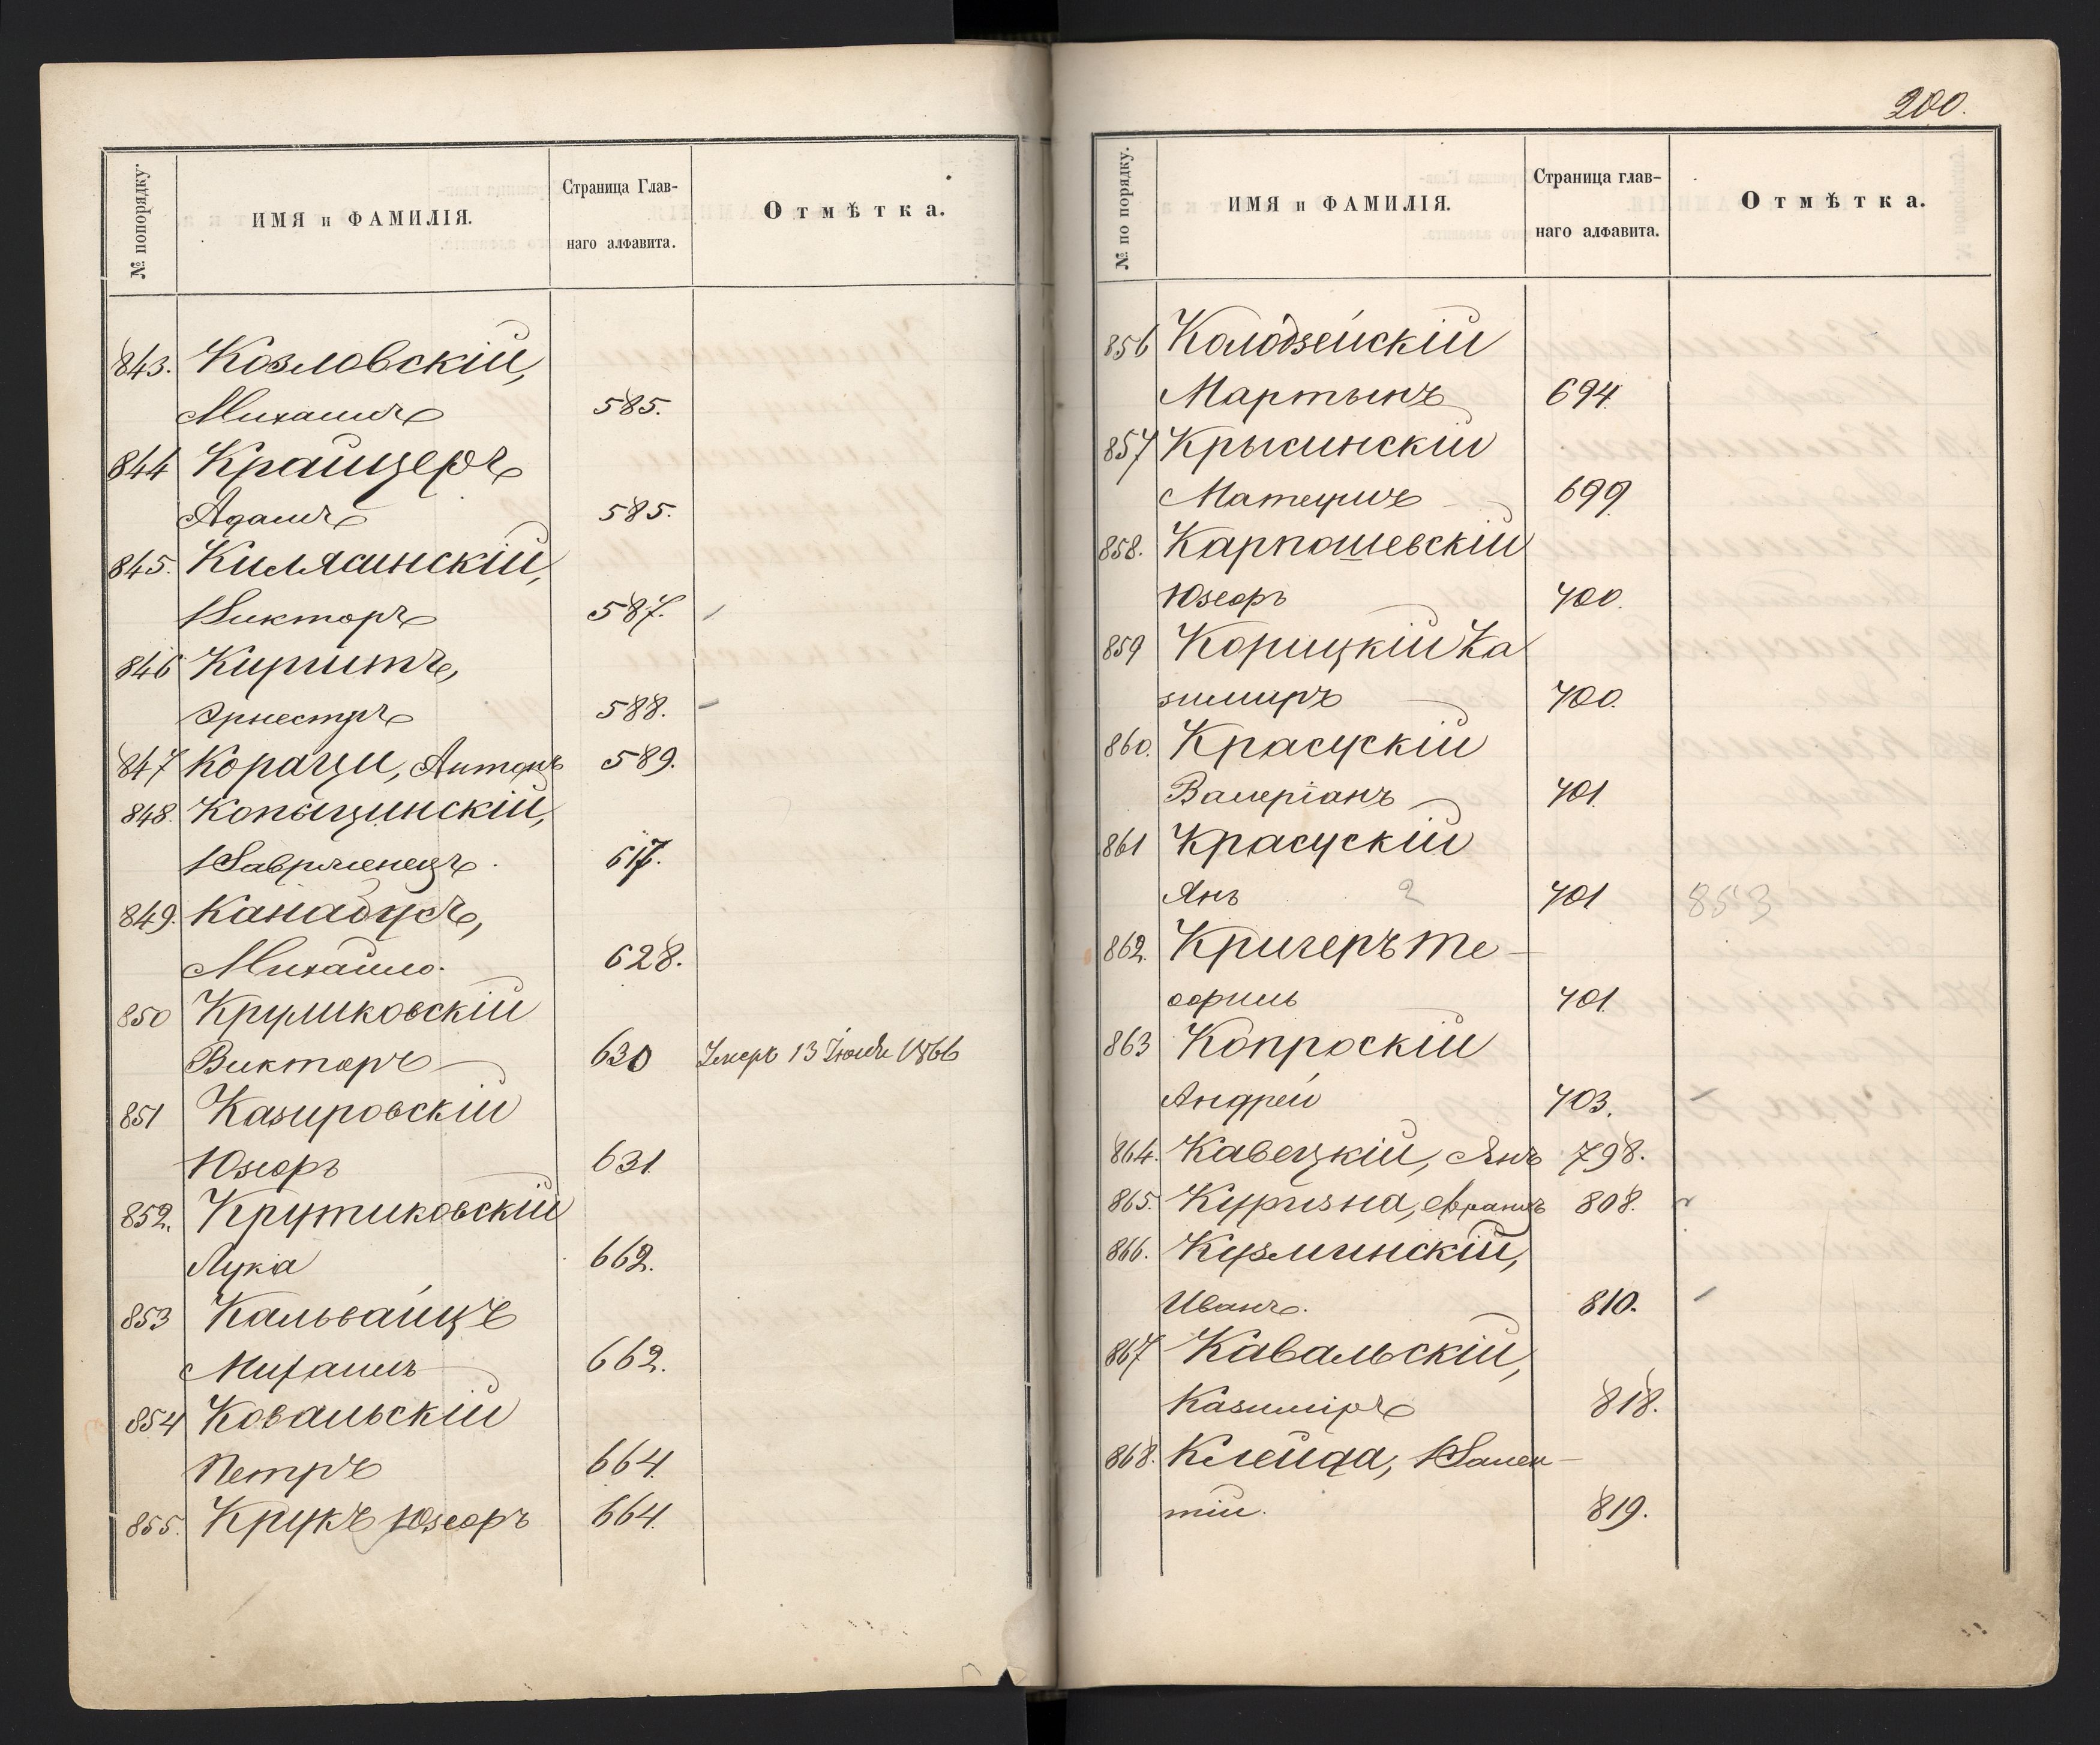 № попорядку.
ИМЯ и ФАМИЛІЯ.
Страница Глав-
наго алфавита.
Отмѣтка.
843. Козловскій,
Михаилъ 585.
844 Крайцеръ
Адамъ 585.
845. Килясинскій,
Викторъ 587.
846 Киршитъ,
Эрнестръ 588.
847 Корацы, Антонъ 589.
848. Копыцинскій,
Лаврженецъ 617.
849. Канабусъ,
Михайло. 628.
850 Крушиковскій
Викторъ 630 Умеръ 13 Іюля 1866
851 Казировскій
Юзефъ 631
852. Крутиковскій
Лука 662.
853 Кальвайцъ
Михаилъ 662.
854 Ковальскій
Петръ 664.
855. Крукъ Юзефъ 664.
200.
№ по порядку.
ИМЯ и ФАМИЛІЯ.
Страница глав-
наго алфавита.
Отмѣтка.
856 Колодзейскій
Мартынъ 694.
857 Крысинскій
Матеушъ 699
858. Карпошевскій
Юзефъ 700.
859 Корицкій Ка
зимиръ 700.
860. Красускій
Валеріанъ 701.
861 Красускій
Янъ 2 701 853
862. Кригеръ Те-
офиль 701.
863 Копроскій
Андрей 703.
864. Кавецкій, Янъ 798.
865. Куризна, Францъ 808.
866. Кузминскій,
Иванъ. 810.
867 Кавальскій,
Казиміръ 818.
868. Клейда, Вален-
тій. 819.